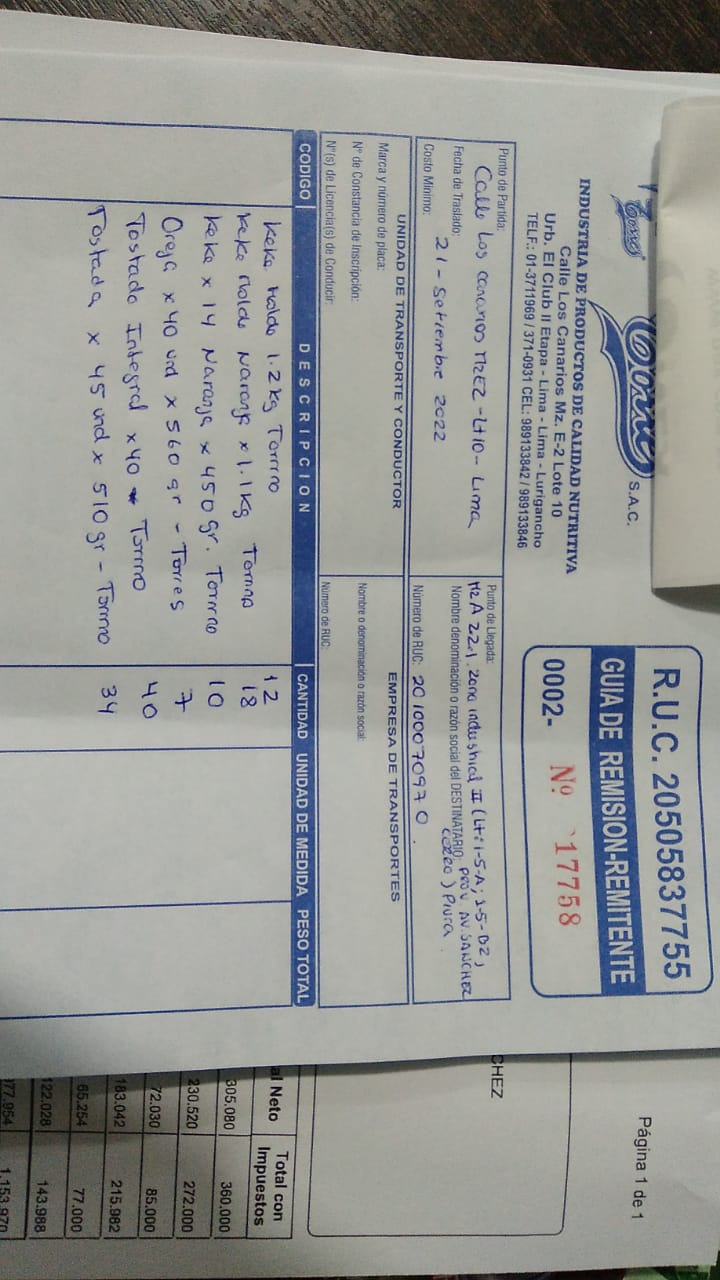 Torres
S.A.C.
INDUSTRIA DE PRODUCTOS DE CALIDAD NUTRITIVA
Calle Los Canarios Mz. E-2 Lote 10
Urb. El Club II Etapa - Lima - Lima - Lurigancho
TELF.: 01-3711969 / 371-0931 CEL.: 989133842 / 989133846
R.U.C. 20505837755
GUIA DE REMISION-REMITENTE
0002- Nº 17758
Punto de Partida:
Calle Los Canarios MzE2 - Lt10 - Lima
Fecha de Traslado:
21 - Setiembre 2022
Costo Mínimo:
Punto de Llegada:
MzA 22-1 Zona industrial II (Lt: 1-5-A; 1-5-D2)
Nombre denominación o razón social del DESTINATARIO: Prov AV SANCHEZ
Cerro) Piura
Número de RUC: 20100070970
UNIDAD DE TRANSPORTE Y CONDUCTOR
Marca y número de placa:
Nº de Constancia de Inscripción:
Nº(s) de Licencia(s) de Conducir:
EMPRESA DE TRANSPORTES
Nombre o denominación o razón social:
Número de RUC:
CODIGO DESCRIPCION CANTIDAD UNIDAD DE MEDIDA PESO TOTAL
Keke Molde 1.2 kg Torrno 12
Keke Molde Naranja x 1.1 kg Torrno 18
Keke x 14 Naranja x 450 gr. Torrno 10
Oreja x 40 und x 560 gr - Torres 7
Tostado Integral x 40 Torrno 40
Tostada x 45 und x 510 gr - Torrno 34
Página 1 de 1
CHEZ
al Neto Total con Impuestos
305.080 360.000
230.520 272.000
72.030 85.000
183.042 215.982
65.254 77.000
122.028 143.988
977.954 1,153.970